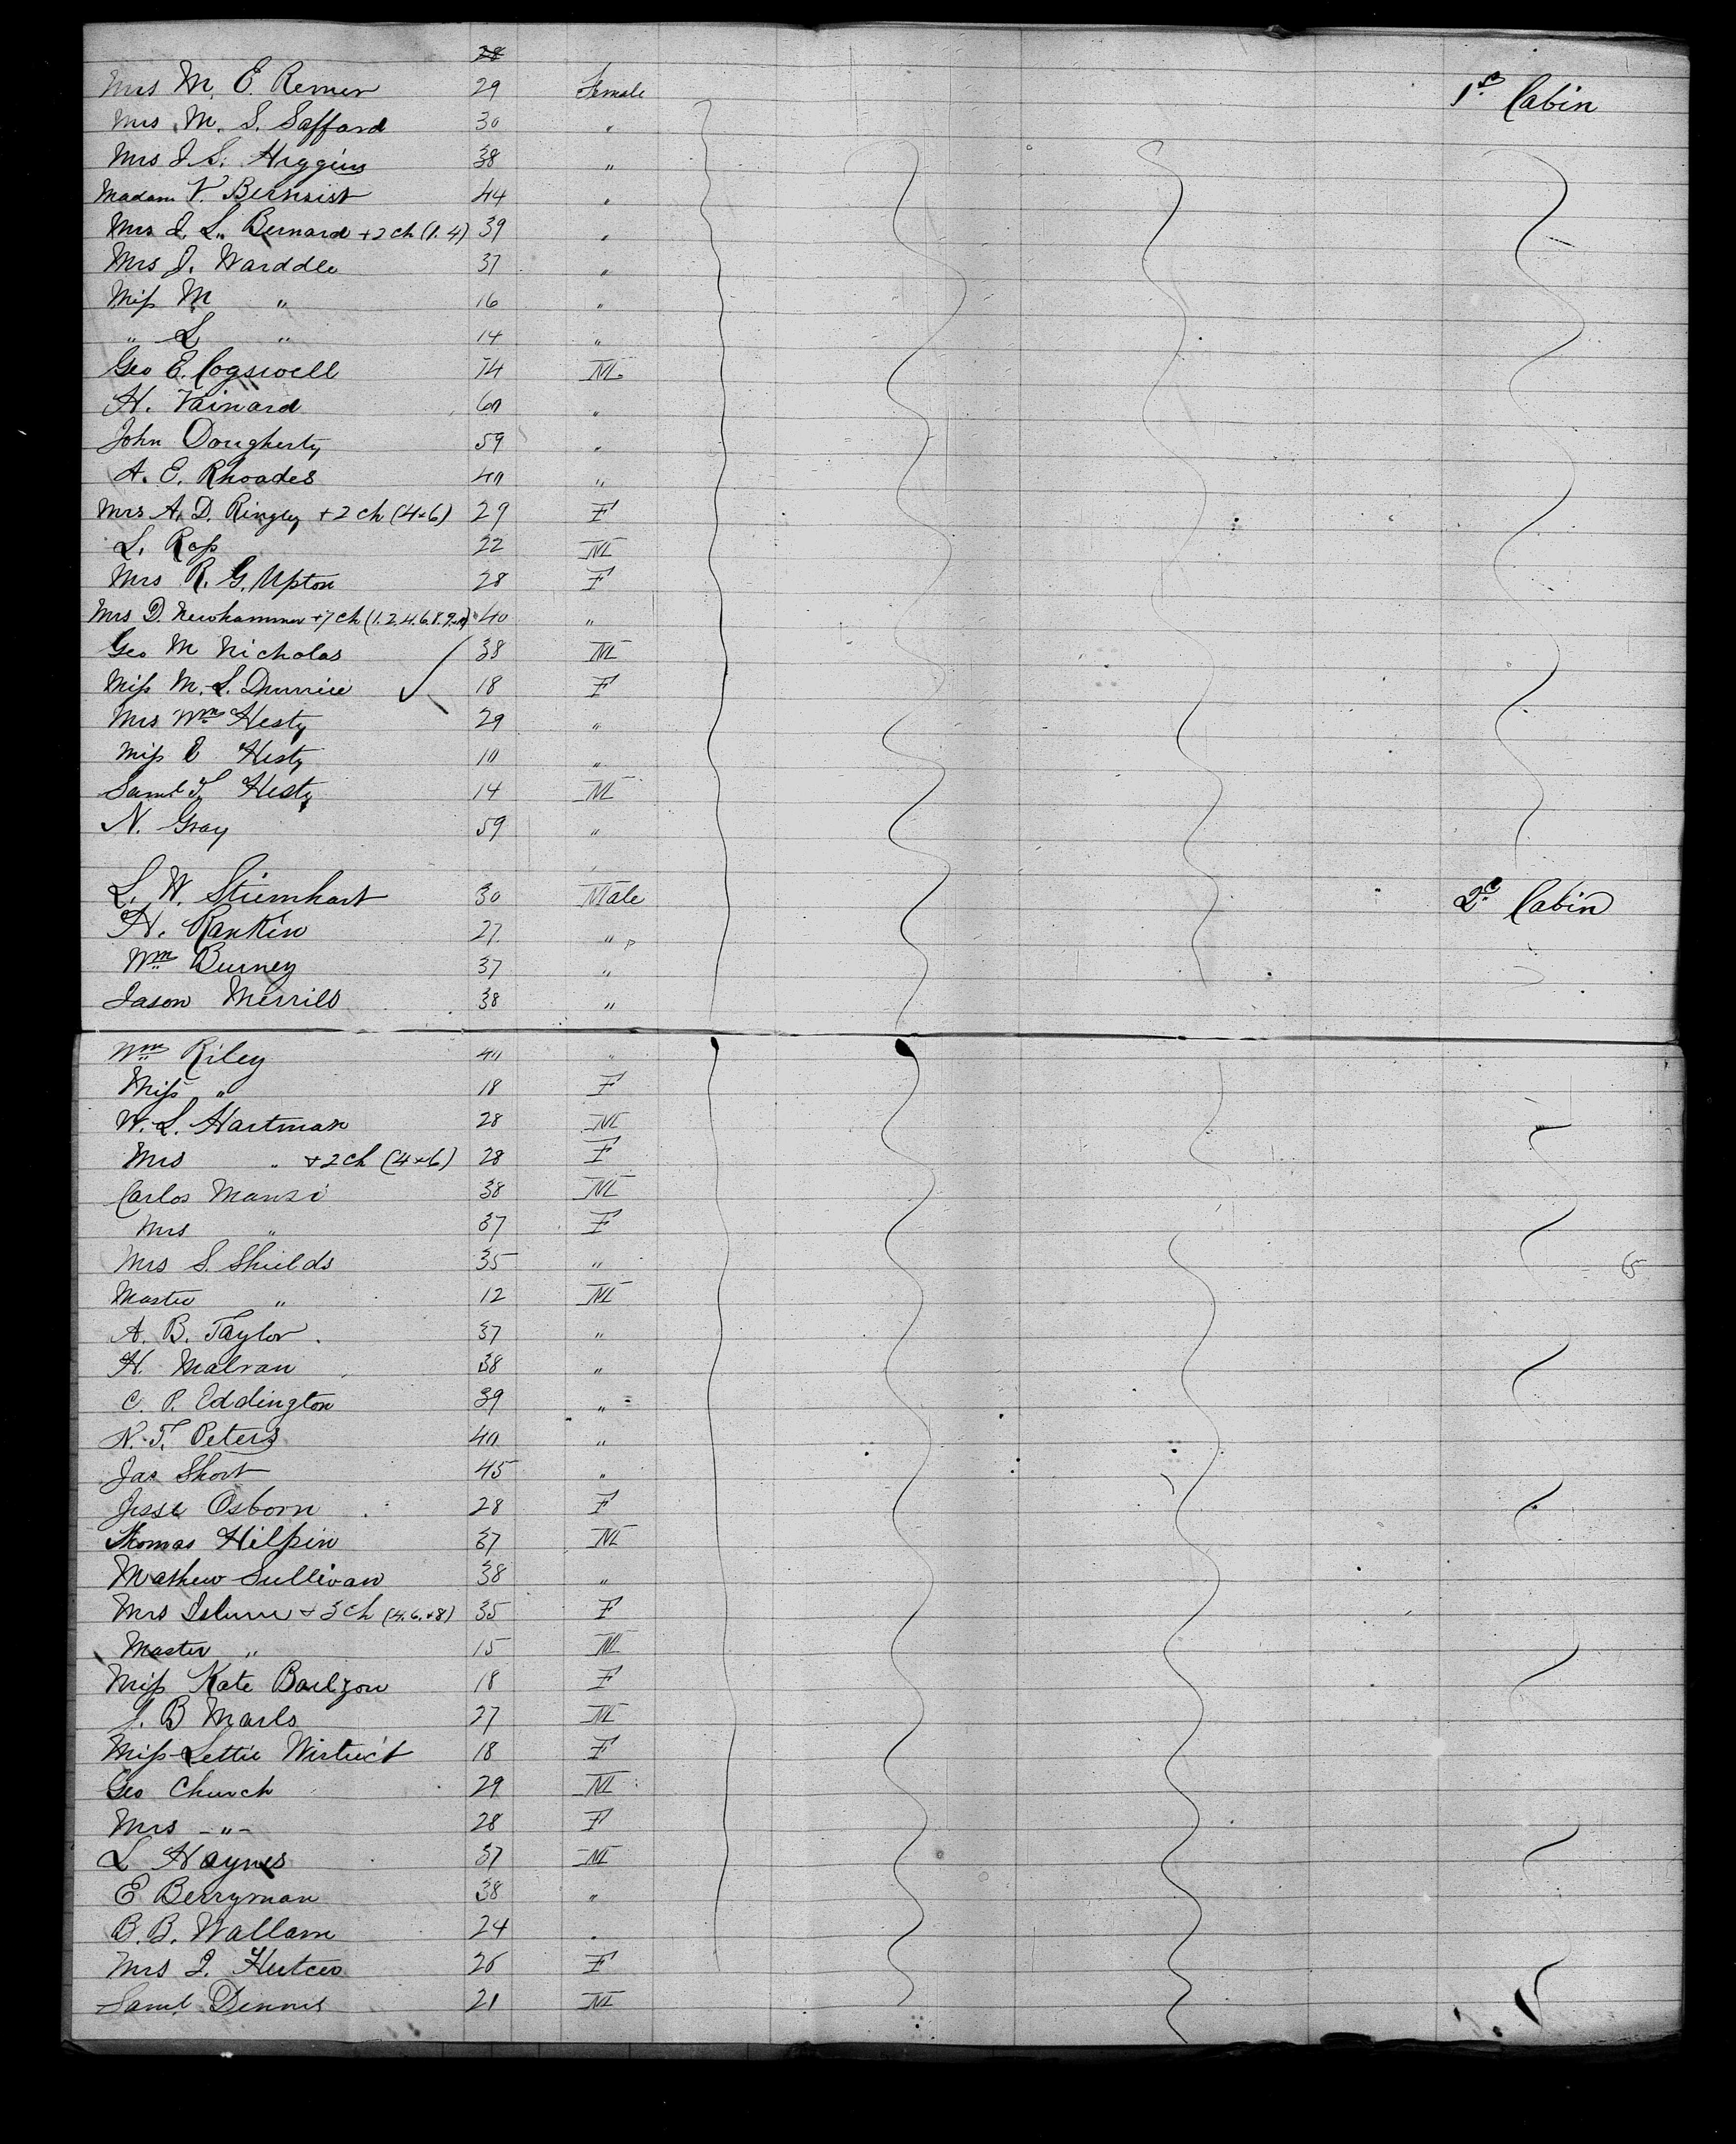 28
Mrs M. E. Remer 29 Female 1st Cabin
Mrs M. S. Saffard 30 "
Mrs J. S. Higgins 38 "
Madam V. 44 "
Mrs J. L. Bernard + 2 ch (1. 4) 39 "
Mrs J. Warddle 37 "
Miss M " 16 "
" L " 14 "
Geo E. Cogswell 14 M
H. Vainard 60 "
John Dougherty 59 "
A. E. Rhoades 40 "
Mrs A. D. Ringly + 2 ch (4 + 6) 29 F
L. Ross 22 M
Mrs R. G. Upton 28 F
Mrs D. Newhammer + 7 ch (1. 2. 4. 6. 8. 9. 40 "
Geo M Nicholas 38 M
Miss M. L. 18 F
Mrs Wm Hesty 29 "
Miss E Hesty 10 "
Saml T. Hesty 14 M
N. Gray 59 "
L. W. Stiernhart 30 Male 2d Cabin
H. Rankin 27 "
Wm Burney 37 "
Jason Merrils 38 "
Wm Riley 40 "
Miss " 18 F
W. L. Hartman 28 M
Mrs " + 2 ch (4 + 6) 28 F
Carlos Manzi 38 M
Mrs " 37 F
Mrs S. Shields 35 "
Master " 12 M
A. B. Taylor 37 "
H. Malvan 38 "
C. P. Eddington 39 "
N. T. Peters 40 "
Jas Short 45 "
Jesse Osborn 28 F
Thomas Hilpin 37 M
Mathew Sullivan 38 "
Mrs + 3 ch (4. 6. + 8) 35 F
Master " 15 M
Miss Kate Bailzon 18 F
J. B Marls 27 M
Miss Lettie 18 F
Geo Church 29 M
Mrs -"- 28 F
L Haynes 37 M
E Berryman 38 "
B. B. Wallam 24 "
Mrs J. 26 F
Saml Dennis 21 M